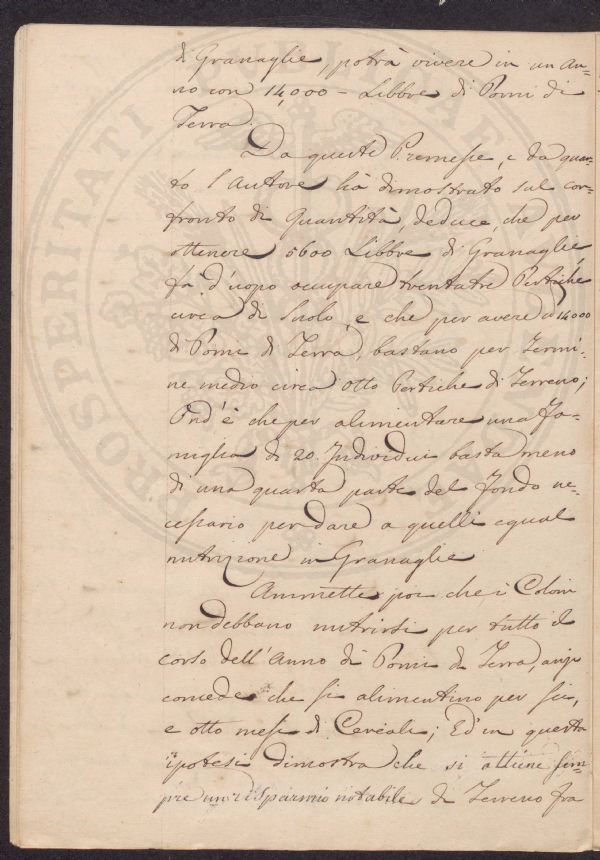 di Granaglie, potrà vivere in un an=
no con 14,000 – Libbre di Pomi di
Terra.
Da queste Premesse, e da quan=
to l'Autore hà dimostrato sul con=
fronto di Quantità, deduce, che per
ottenere 5600 Libbre di Granaglie,
fà d'uopo occupare trentatre Pertiche
circa di Suolo, e che per avere 14,000
di Pomi di Terra, bastano per Termi=
ne medio circa otto Pertiche di Terreno;
Ond'è che per alimentare una Fa=
miglia di 20. Individui basta meno
di una quarta parte del Fondo ne=
cessario per dare a quelli egual
nutrizione in Granaglie
Ammette poi che i Coloni
non debbano nutrirsi per tutto il
corso dell'Anno di Pomi di Terra, anzi
concede che si alimentino per sei,
e otto mesi di Cereali; Ed in questa
ipotesi dimostra che si ottiene sem=
pre un risparmio notabile di Terreno fra
PROSPERITATI PUBLICAE